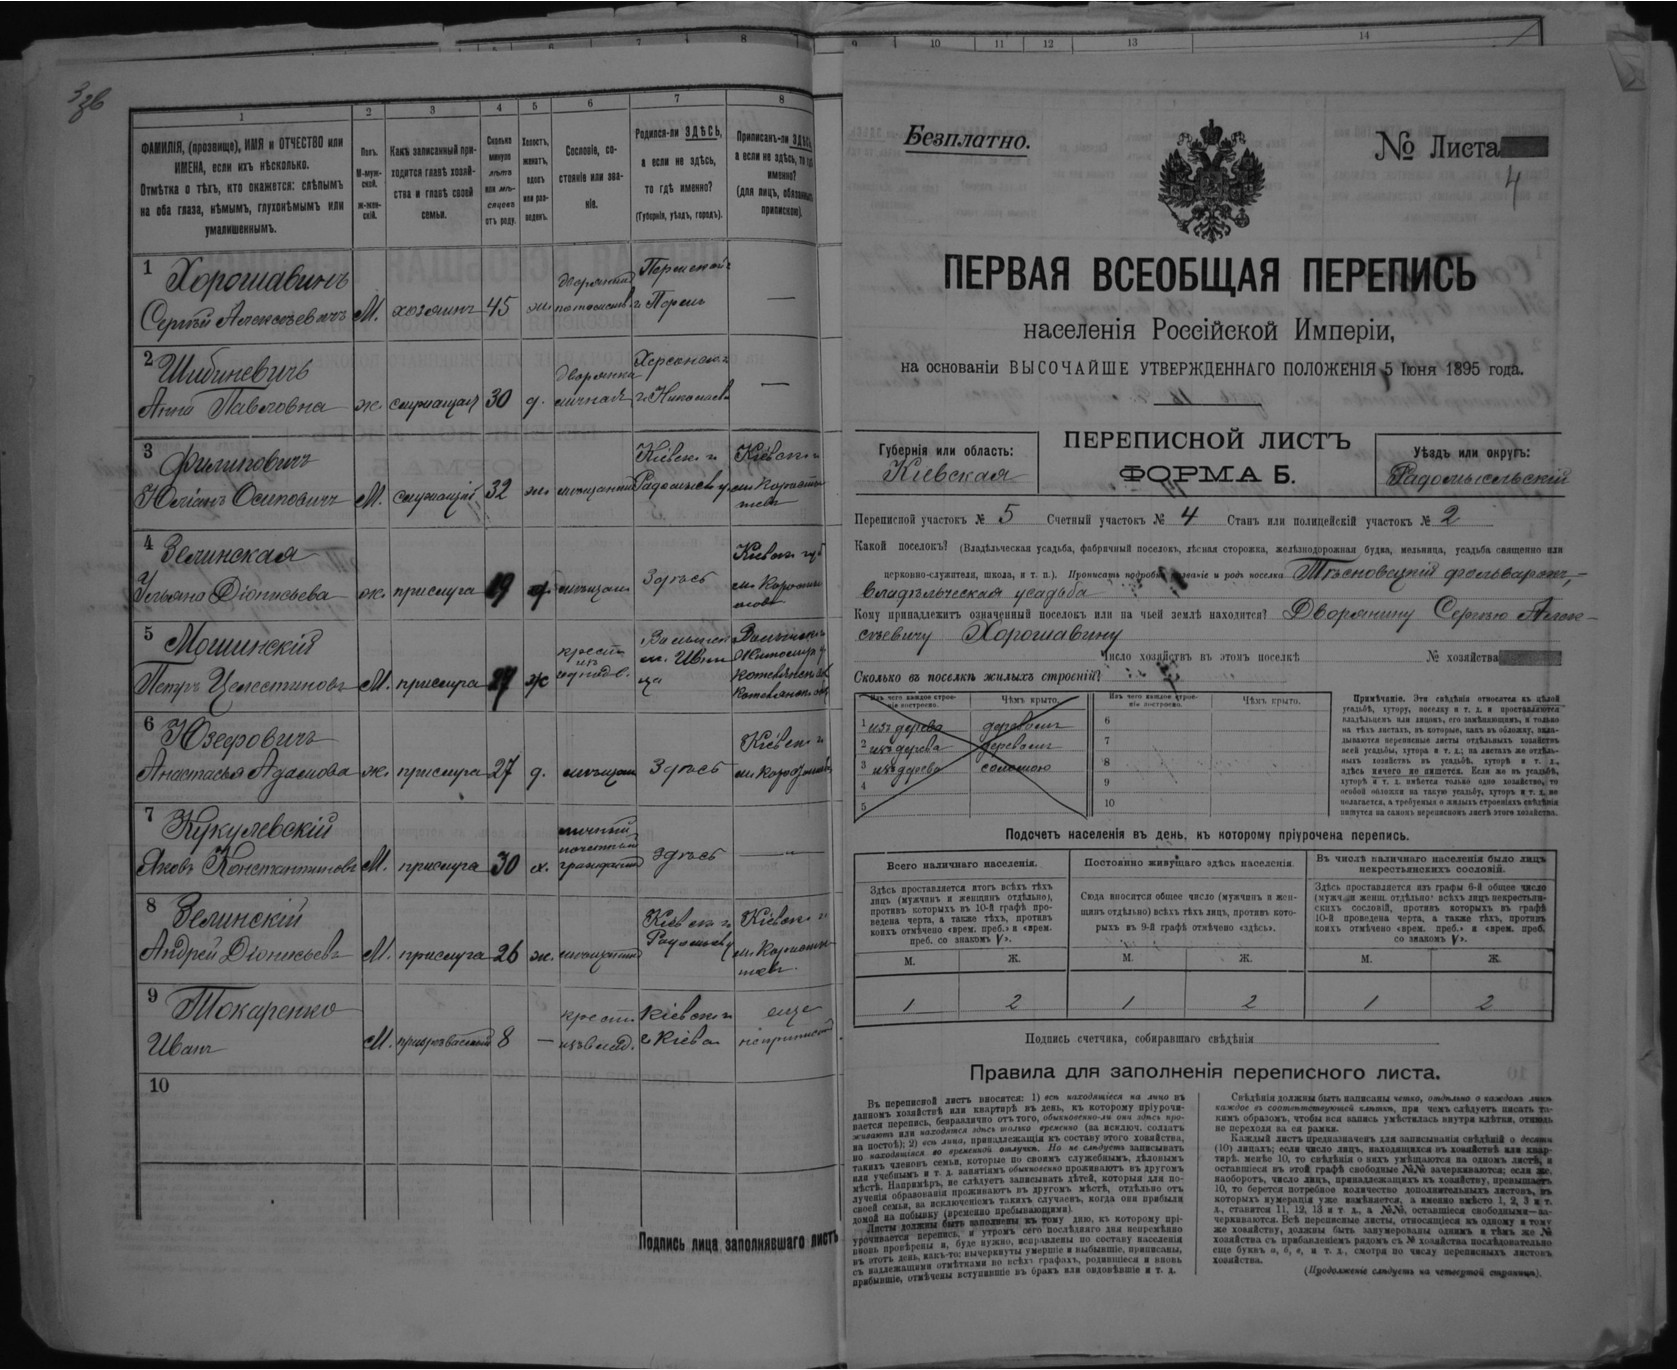 9 10 11 12 13 14
7 8
1 2 3 4 5 6 7 8
ФАМИЛІЯ, (прозвище), ИМЯ и ОТЧЕСТВО или
ИМЕНА, если ихъ нѣсколько.
Отмѣтка о тѣхъ, кто окажется: слѣпымъ
на оба глаза, нѣмымъ, глухонѣмымъ или
умалишеннымъ.
Полъ.
М-муж-
ской.
Ж-жен-
скій.
Какъ записанный при-
ходится главѣ хозяй-
ства и главѣ своей
семьи.
Сколько
минуло
лѣтъ
или мѣ-
сяцевъ
отъ роду.
Холостъ,
женатъ,
вдовъ
или раз-
веденъ.
Сословіе, со-
стояніе или зва-
ніе.
Родился-ли ЗДѢСЬ,
а если не здѣсь,
то гдѣ именно?
(Губернія, уѣздъ, городъ).
Приписанъ-ли ЗДѢСЬ,
а если не здѣсь, то гдѣ
именно?
(для лицъ, обязанныхъ
припискою).
1 Хорошавинъ
Сергѣй Алексѣевичъ М. хозяинъ 45 ж. дворянинъ потомств. Пермской г. Пермь —
2 Шибиневичъ
Анна Павловна ж. служащая 30 д. дворянка личная Херсонск. г. Николаевъ —
3 Филиповичъ
Юліанъ Осиповичъ М. служащій 32 ж. мѣщанинъ Кіевск. г. Радомысл. у. Кіевск. г. м. Коростышевъ
4 Зелинская
Ульяна Діонисьева ж. прислуга 19 д. мѣщан. Здѣсь Кіевск. губ. м. Коростышевъ
5 Мошинскій
Петръ Целестиновъ М. прислуга 27 ж
6 Юзефовичъ
Анастасья Адамова ж. прислуга 27 д. мѣщан Здѣсь Кіевск. г. м. Коростышевъ
7 Кукулевскій
Яковъ Константиновъ М. прислуга 30 х. личный почетный гражданинъ Здѣсь —
8 Зелинскій
Андрей Діонисьевъ М. прислуга 26 ж. мѣщанинъ Кіевск. г. Радомысл. у Кіевск. г. м. Коростышевъ.
9 Токаренко
Иванъ М. 8 — крест. Кіевск. г. г. Кіевъ еще неприписанъ
10
Подпись лица заполнявшаго листъ
Безплатно.
№ Листа
4
ПЕРВАЯ ВСЕОБЩАЯ ПЕРЕПИСЬ
населенія Россійской Имперіи,
на основаніи ВЫСОЧАЙШЕ УТВЕРЖДЕННАГО ПОЛОЖЕНІЯ 5 Іюня 1895 года.
Губернія или область:
Кіевская
ПЕРЕПИСНОЙ ЛИСТЪ
ФОРМА Б.
Уѣздъ или округъ:
Радомысльскій
Переписной участокъ № 5 Счетный участокъ № 4 Станъ или полицейскій участокъ № 2
Какой поселокъ? (Владѣльческая усадьба, фабричный поселокъ, лѣсная сторожка, желѣзнодорожная будка, мельница, усадьба священно или
церковно-служителя, школа, и т. п.). Прописать подробн. названіе и родъ поселка Тѣсновецкій фольваркъ, —
владѣльческая усадьба
Кому принадлежитъ означенный поселокъ или на чьей землѣ находится? Дворянину Сергѣю Алек-
сѣевичу Хорошавину
Число хозяйствъ въ этомъ поселкѣ № хозяйства
Сколько въ поселкѣ жилыхъ строеній?
Изъ чего каждое строе-
ніе построено. Чѣмъ крыто. Изъ чего каждое строе-
ніе построено. Чѣмъ крыто.
1 изъ дерева деревомъ 6
2 изъ дерева деревомъ 7
3 изъ дерева соломою 8
4 9
5 10
Примѣчаніе. Эти свѣдѣнія относятся къ цѣлой
усадьбѣ, хутору, поселку и т. д. и проставляются
владѣльцемъ или лицомъ, его замѣняющимъ, и только
на тѣхъ листахъ, въ которые, какъ въ обложку, вкла-
дываются переписные листы отдѣльныхъ хозяйствъ
всей усадьбы, хутора и т. д.; на листахъ же отдѣль-
ныхъ хозяйствъ въ усадьбѣ, хуторѣ и т. д.,
здѣсь ничего не пишется. Если же въ усадьбѣ,
хуторѣ и т. д. имѣется только одно хозяйство, то
особой обложки на такую усадьбу, хуторъ и т. д. не
полагается, а требуемыя о жилыхъ строеніяхъ свѣдѣнія
пишутся на самомъ переписномъ листѣ этого хозяйства.
Подсчетъ населенія въ день, къ которому пріурочена перепись.
Всего наличнаго населенія.
Здѣсь проставляется итогъ всѣхъ тѣхъ
лицъ (мужчинъ и женщинъ отдѣльно),
противъ которыхъ въ 10-й графѣ про-
ведена черта, а также тѣхъ, противъ
коихъ отмѣчено «врем. преб.» и «врем.
преб. со знакомъ V».
Постоянно живущаго здѣсь населенія.
Сюда вносится общее число (мужчинъ и жен-
щинъ отдѣльно) всѣхъ тѣхъ лицъ, противъ кото-
рыхъ въ 9-й графѣ отмѣчено «здѣсь».
Въ числѣ наличнаго населенія было лицъ
некрестьянскихъ сословій.
Здѣсь проставляется изъ графы 6-й общее число
(мужч. и женщ. отдѣльно) всѣхъ лицъ некрестьян-
скихъ сословій, противъ которыхъ въ графѣ
10-й проведена черта, а также тѣхъ, противъ
коихъ отмѣчено «врем. преб.» и «врем. преб.
со знакомъ V».
М. Ж. М. Ж. М. Ж.
1 2 1 2 1 2
Подпись счетчика, собиравшаго свѣдѣнія
Правила для заполненія переписного листа.
Въ переписной листъ вносятся: 1) всѣ находящіеся на лицо въ
данномъ хозяйствѣ или квартирѣ въ день, къ которому пріурочи-
вается перепись, безразлично отъ того, обыкновенно-ли они здѣсь про-
живаютъ или находятся здѣсь только временно (за исключ. солдатъ
на постоѣ); 2) всѣ лица, принадлежащія къ составу этого хозяйства,
но находящіяся во временной отлучкѣ. Но не слѣдуетъ записывать
такихъ членовъ семьи, которые по своимъ служебнымъ, дѣловымъ
или учебнымъ и т. д. занятіямъ обыкновенно проживаютъ въ другомъ
мѣстѣ. Напримѣръ, не слѣдуетъ записывать дѣтей, которыя для по-
лученія образованія проживаютъ въ другомъ мѣстѣ, отдѣльно отъ
своей семьи, за исключеніемъ такихъ случаевъ, когда они прибыли
домой на побывку (временно пребывающими).
Листы должны быть заполнены къ тому дню, къ которому прі-
урочивается перепись, и утромъ сего послѣдняго дня непремѣнно
вновь провѣрены и, буде нужно, исправлены по составу населенія
въ этотъ день, какъ-то: вычеркнуты умершіе и выбывшіе, приписаны,
съ надлежащими отмѣтками во всѣхъ графахъ, родившіеся и вновь
прибывшіе, отмѣчены вступившіе въ бракъ или овдовѣвшіе и т. д.
Свѣдѣнія должны быть написаны четко, отдѣльно о каждомъ лицѣ
каждое въ соотвѣтствующей клѣткѣ, при чемъ слѣдуетъ писать та-
кимъ образомъ, чтобы вся запись умѣстилась внутри клѣтки, отнюдь
не переходя за ея рамки.
Каждый листъ предназначенъ для записыванія свѣдѣній о десяти
(10) лицахъ; если число лицъ, находящихся въ хозяйствѣ или квар-
тирѣ, менѣе 10, то свѣдѣнія о нихъ умѣщаются на одномъ листѣ, и
оставшіеся въ этой графѣ свободные №№ зачеркиваются; если же,
наоборотъ, число лицъ, принадлежащихъ къ хозяйству, превышаетъ
10, то берется потребное количество дополнительныхъ листовъ, въ
которыхъ нумерація уже измѣняется, а именно вмѣсто 1, 2, 3 и т.
д., ставится 11, 12, 13 и т. д., а №№, оставшіеся свободными—за-
черкиваются. Всѣ переписные листы, относящіеся къ одному и тому
же хозяйству, должны быть занумерованы однимъ и тѣмъ же №
хозяйства съ прибавленіемъ рядомъ съ № хозяйства послѣдовательно
еще буквъ а, б, в, и т. д., смотря по числу переписныхъ листовъ
хозяйства.
(Продолженіе слѣдуетъ на четвертой страницѣ).